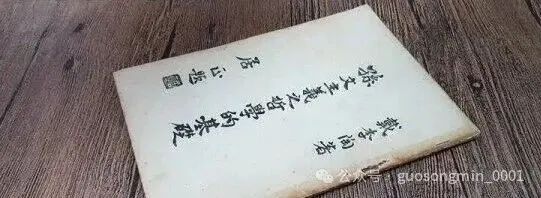 戴季陶著
孫文主義之哲學的基礎
居正題
公众号 · guosongmin_0001